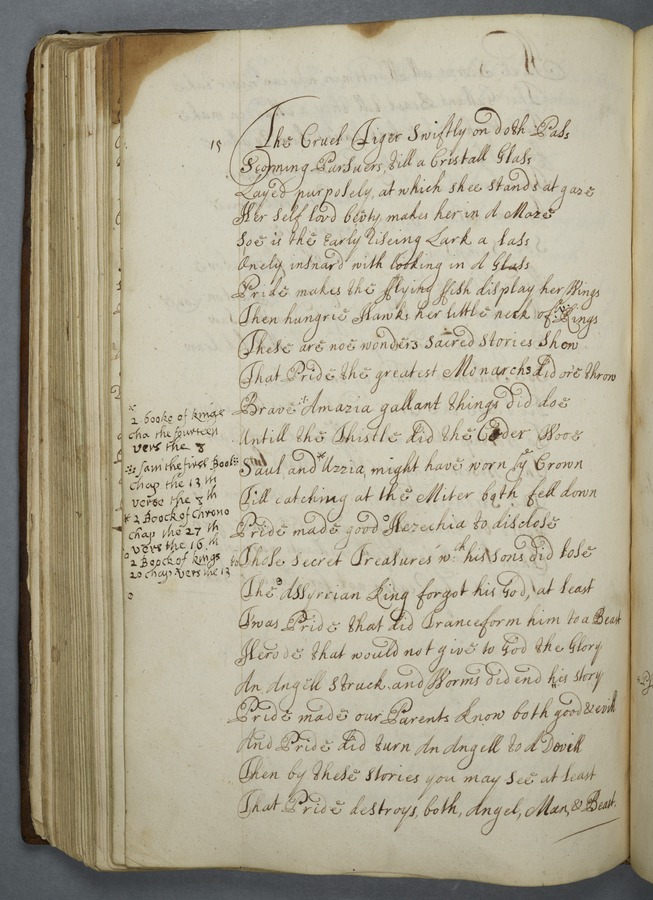 15
The Cruel Tiger Swiftly on doth Pass
Scorning Pursuers, till a Cristall Glass
Layed purposely, at which shee stands at gaze
Her self lov'd bevty, makes her in A Maze
Soe is the Early Riseing Lark a lass
Onely insnard with looking in A Glass
Pride makes the fflying ffish display her Wings
Then hungrie Hawks her little neck of Wrings
These are noe wonders Sacred Stories Show
That Pride the greatest Monarchs did o're throw
Brave * Amazia gallant things did doe
Untill the Thistle did the Ceder Wooe
Saul and * Uzzia, might have worn ye Crown
Till catching at the Miter both fell down
Pride made good o Hezechia to disclose
Those Secret Treasures wch his sons did lose
The Assyrrian King forgot his God, at least
Twas Pride that did Tranceform him to a Beast
Herode that would not give to God the Glory
An Angell Struck and Worms did end his story
Pride made our Parents know both good & evill
And Pride did turn An Angell to A Devill
Then by these stories you may see at least
That Pride destroys, both, Angel, Man, & Beast.
*
2 booke of kings
cha the fourteen
vers the 8
Sam the first Book
chap the 13 th
verse the
* 2 Boock of Chrono
chap the 27 th
vers the 16 th
o 2 Boock of kings
20 chap vers the 13
o